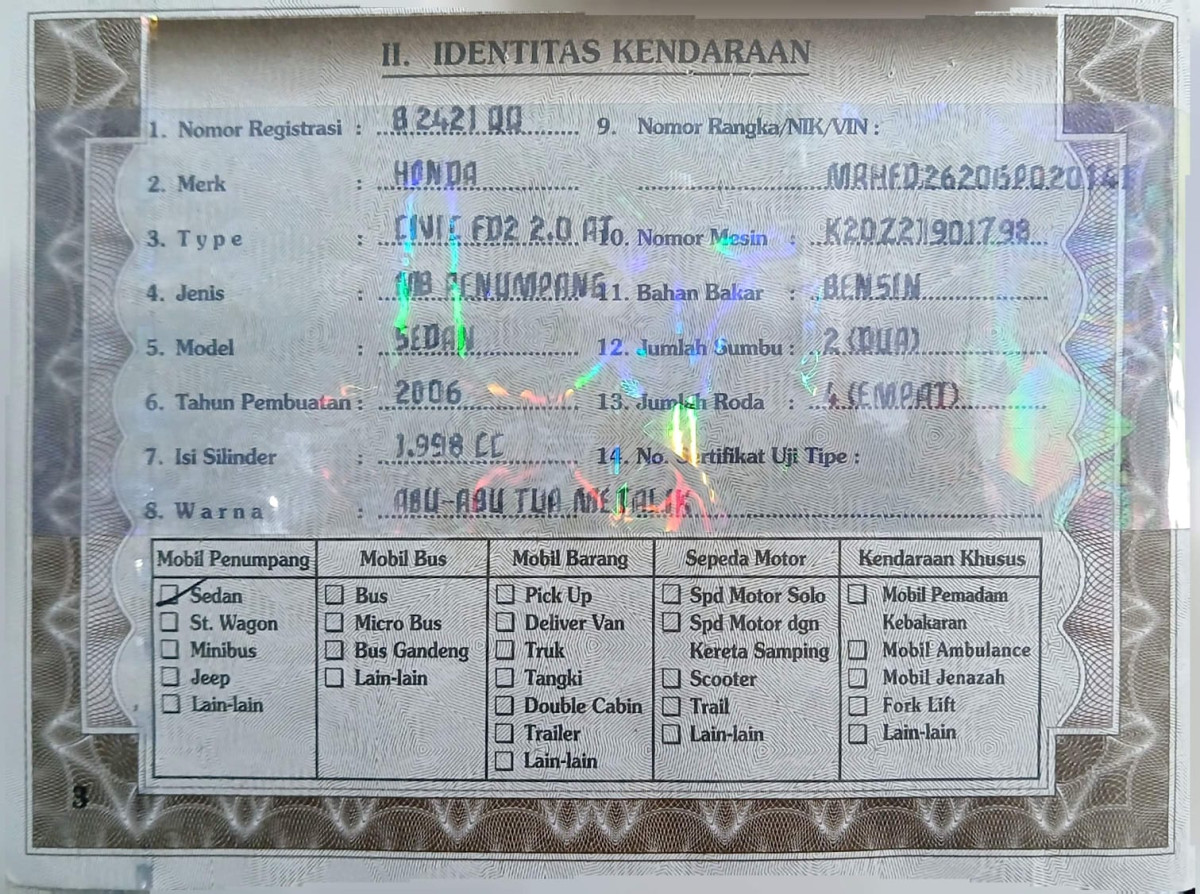 II. IDENTITAS KENDARAAN
1. Nomor Registrasi : B 2421 QQ
2. Merk : HONDA
3. Type : CIVIC FD2 2.0 AT
4. Jenis : MB PENUMPANG
5. Model : SEDAN
6. Tahun Pembuatan : 2006
7. Isi Silinder : 1.998 CC
8. Warna : ABU-ABU TUA METALIK
9. Nomor Rangka/NIK/VIN :
10. Nomor Mesin : K20Z21901798
11. Bahan Bakar : BENSIN
12. Jumlah Sumbu : 2 (DUA)
13. Jumlah Roda : 4 (EMPAT)
14. No. Sertifikat Uji Tipe :
Mobil Penumpang
Sedan
St. Wagon
Minibus
Jeep
Lain-lain
Mobil Bus
Bus
Micro Bus
Bus Gandeng
Lain-lain
Mobil Barang
Pick Up
Deliver Van
Truk
Tangki
Double Cabin
Trailer
Lain-lain
Sepeda Motor
Spd Motor Solo
Spd Motor dgn
Kereta Samping
Scooter
Trail
Lain-lain
Kendaraan Khusus
Mobil Pemadam
Kebakaran
Mobil Ambulance
Mobil Jenazah
Fork Lift
Lain-lain
3